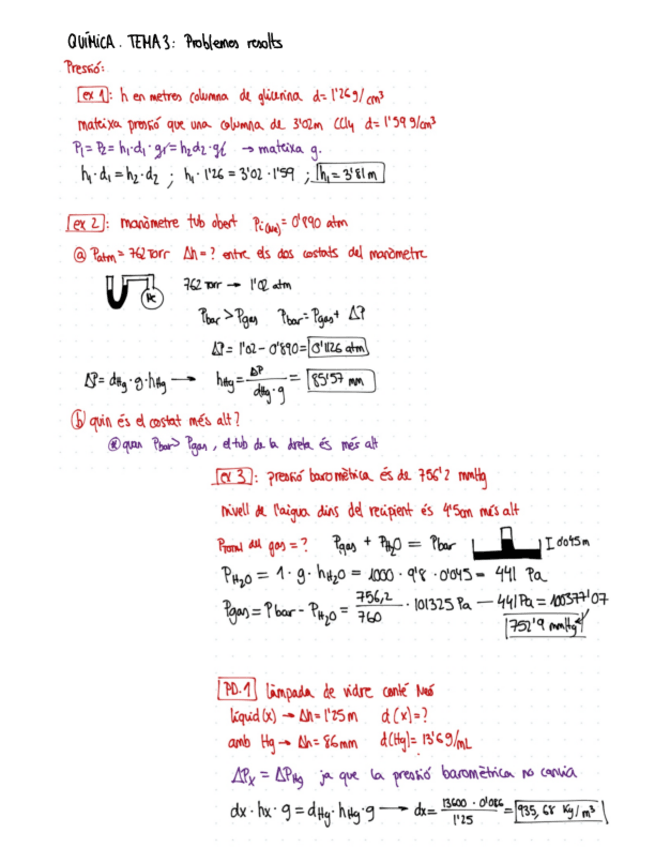 QUÍMICA. TEMA 3: Problemes resolts
Pressió:
ex 1: h en metres columna de glicerina d= 1'26 g/cm³
mateixa pressió que una columna de 3'02m CCl₄ d= 1'59 g/cm³
P₁= P₂= h₁·d₁·g= h₂d₂·g → mateixa g.
h₁·d₁= h₂·d₂ ; h₁·1'26 = 3'02·1'59 ; h₁= 3'81 m
ex 2: manòmetre tub obert Pi(He)= 0'890 atm
ⓐ Patm= 762 Torr Δh= ? entre els dos costats del manòmetre
He
762 Torr → 1'02 atm
Pbar > Pgas Pbar= Pgas+ ΔP
ΔP= 1'02 - 0'890= 0'1126 atm
ΔP= dHg·g·hHg → hHg= ΔP / dHg·g = 85'57 mm
ⓑ quin és el costat més alt?
* quan Pbar> Pgas, el tub de la dreta és més alt
ex 3: pressió baromètrica és de 756'2 mmHg
nivell de l'aigua dins del recipient és 4'5cm més alt
Ptotal del gas = ? Pgas + PH₂O = Pbar I 0'045m
PH₂O = 1·g·hH₂O = 1000·9'8·0'045 = 441 Pa
Pgas= Pbar - PH₂O = 756,2/760 · 101325 Pa — 441 Pa= 100377'07
752'9 mmHg
PD.1 làmpada de vidre conté Neó
líquid(x) → Δh= 1'25 m d(x)=?
amb Hg → Δh= 86mm d(Hg)= 13'6 g/mL
ΔPx = ΔPHg ja que la pressió baromètrica no canvia
dx·hx·g= dHg·hHg·g → dx= 13600·0'086 / 1'25 = 935,68 Kg/m³